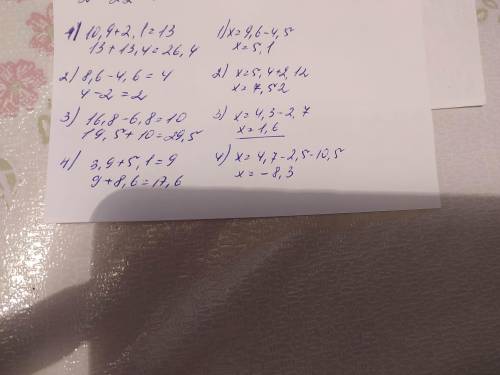 1) 10,9+2,1=13
13+13,4=26,4
2) 8,6-4,6=4
4-2=2
3) 16,8-6,8=10
19,5+10=29,5
4) 3,9+5,1=9
9+8,6=17,6
1) x=9,6-4,5
x=5,1
2) x=5,4+2,12
x=7,52
3) x=4,3-2,7
x=1,6
4) x=4,7-2,5-10,5
x=-8,3